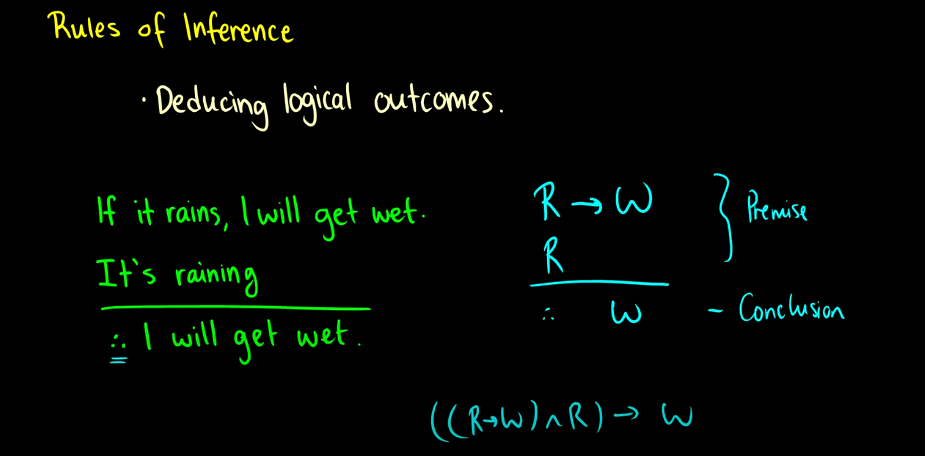 Rules of Inference
· Deducing logical outcomes.
If it rains, I will get wet.
It's raining
∴ I will get wet.
R → W
R
} Premise
∴ W – Conclusion
((R→W)∧R) → W